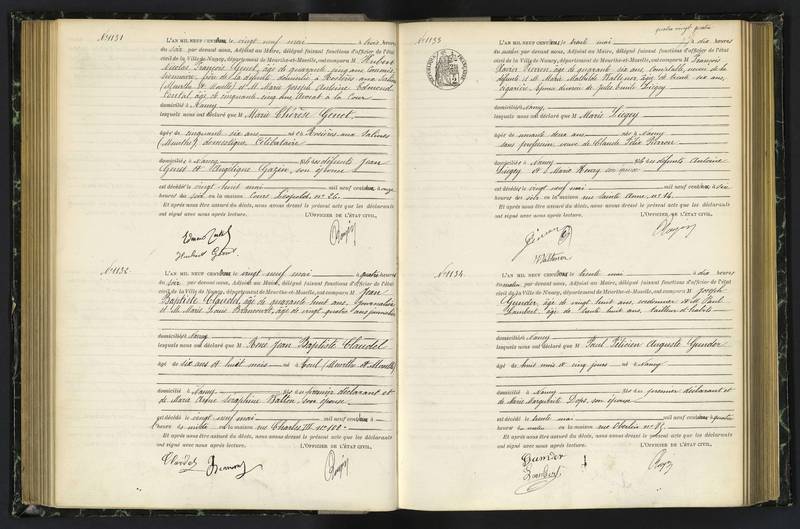 No 1131
L'AN MIL NEUF CENT deux, le vingt neuf mai à trois heures
du soir par devant nous, Adjoint au Maire, délégué faisant fonctions d'officier de l'état
civil de la Ville de Nancy, département de Meurthe-et-Moselle, ont comparu M Hubert
Nicolas François Genet, âgé de quarante cinq ans,
frère de la défunte, domicilié à Rosières aux Salines
(Meurthe et Moselle) et M. Marie Joseph Antoine Edmond
âgé de cinquante cinq ans, avocat à la Cour
domicilié à Nancy
lesquels nous ont déclaré que M Marie Thérèse Genet
âgée de cinquante six ans née à Rosières aux Salines
(Meurthe) domestique, Célibataire
domiciliée à Nancy fille des défunts Jean
Genet et Angélique Gazin, son épouse
est décédée le vingt huit mai mil neuf cent deux à onze
heures du soir en la maison Cours Léopold, no 26.
Et après nous être assuré du décès, nous avons dressé le présent acte que les déclarants
ont signé avec nous après lecture. L'OFFICIER DE L'ÉTAT CIVIL,
Hubert Genet
No 1132
L'AN MIL NEUF CENT deux le vingt neuf mai à quatre heures
du soir par devant nous, Adjoint au Maire, délégué faisant fonctions d'officier de l'état
civil de la Ville de Nancy, département de Meurthe-et-Moselle, ont comparu M Jean
Baptiste Claudel, âgé de quarante huit ans, journalier
et M. Marie Louis, âgé de vingt quatre ans, journalier
domiciliés à Nancy
lesquels nous ont déclaré que M René Jean Baptiste Claudel
âgé de dix ans et huit mois né à Toul (Meurthe et Moselle)
domicilié à Nancy fils au premier déclarant et
de Marie Séraphine Balton, son épouse
est décédé le vingt neuf mai mil neuf cent deux à
heures du matin en la maison rue Charles III no 100.
Et après nous être assuré du décès, nous avons dressé le présent acte que les déclarants
ont signé avec nous après lecture. L'OFFICIER DE L'ÉTAT CIVIL,
Claudel
quatre vingt quatre
No 1133
L'AN MIL NEUF CENT deux, le trente mai à dix heures
du matin par devant nous, Adjoint au Maire, délégué faisant fonctions d'officier de l'état
civil de la Ville de Nancy, département de Meurthe-et-Moselle, ont comparu M François
Xavier Pierron, âgé de quarante six ans, Comptable, neveu de la
défunte et Marie Mathilde âgée de trente six ans,
cigarière, épouse de Jules Émile Liegey
domiciliés à Nancy
lesquels nous ont déclaré que M Marie Liegey
âgée de soixante deux ans née à Nancy
sans profession, veuve de Claude Félix Pierron
domiciliée à Nancy fille des défunts Antoine
Liegey et Marie Henry son épouse
est décédée le vingt neuf mai mil neuf cent deux à six
heures du soir en la maison rue Sainte Anne, no 14.
Et après nous être assuré du décès, nous avons dressé le présent acte que les déclarants
ont signé avec nous après lecture. L'OFFICIER DE L'ÉTAT CIVIL,
No 1134.
L'AN MIL NEUF CENT deux le trente mai à dix heures
du matin par devant nous, Adjoint au Maire, délégué faisant fonctions d'officier de l'état
civil de la Ville de Nancy, département de Meurthe-et-Moselle, ont comparu M Joseph
Gunder, âgé de vingt huit ans, cordonnier et M. Paul
Lambert, âgé de trente huit ans, tailleur d'habits
domiciliés à Nancy
lesquels nous ont déclaré que M Paul Félicien Auguste Gunder
âgé de huit mois et cinq jours né à Nancy
domicilié à Nancy fils au premier déclarant et
de Marie Marguerite Dops, son épouse
est décédé le trente mai mil neuf cent deux à quatre
heures du matin en la maison rue Oberlin no 85.
Et après nous être assuré du décès, nous avons dressé le présent acte que les déclarants
ont signé avec nous après lecture. L'OFFICIER DE L'ÉTAT CIVIL,
Gunder
Lambert